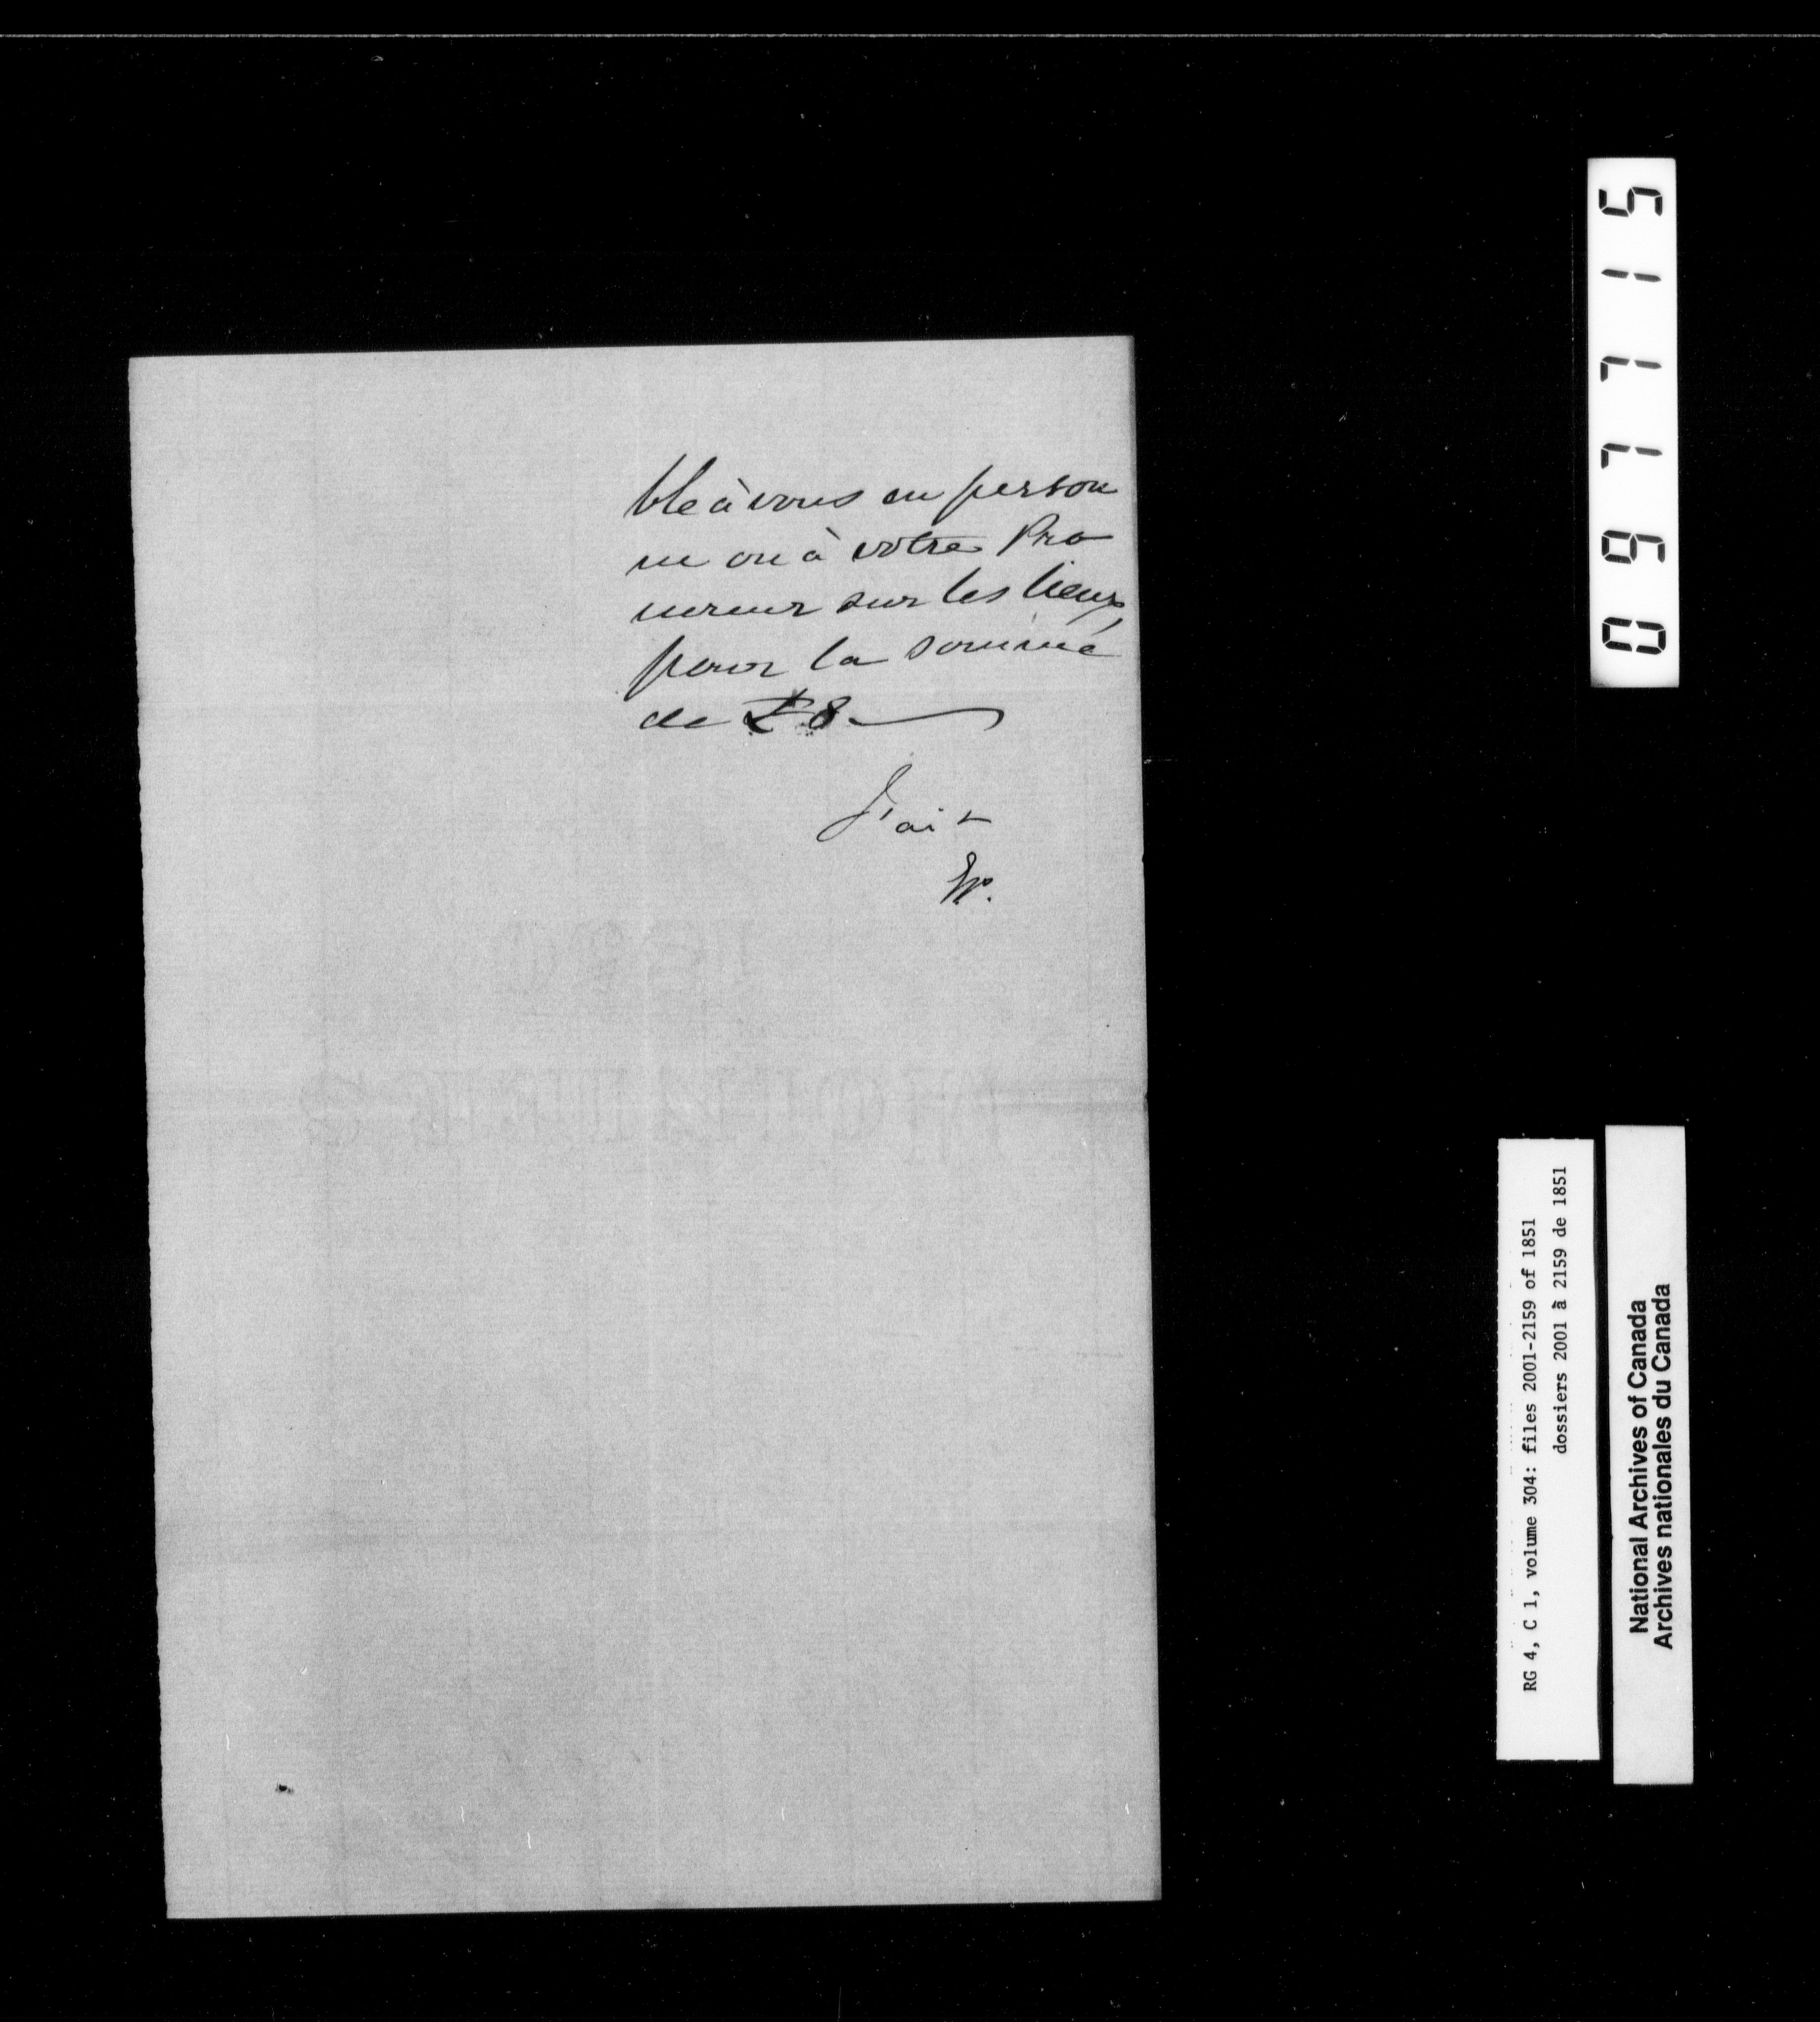 ble à vous en person
ne ou à votre Pro
cureur sur les lieux,
pour la somme
de £8.
Fait
097715
RG 4, C 1, volume 304: files 2001-2159 of 1851
dossiers 2001 à 2159 de 1851
National Archives of Canada
Archives nationales du Canada